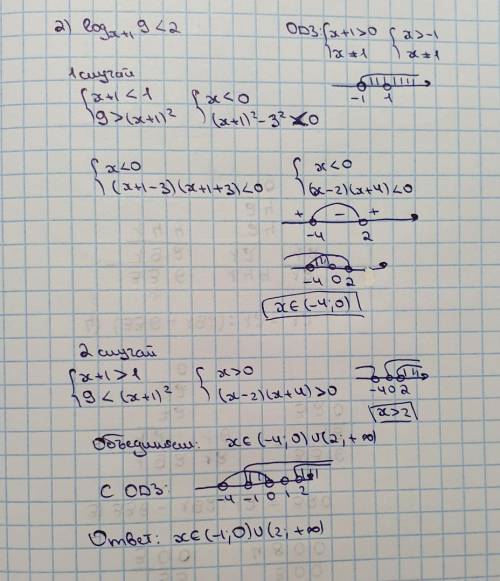 2) log_{x+1} 9 < 2 ОДЗ: { x+1>0 { x>-1
x≠1 x≠1
-1 1
1 случай
{ x+1<1 { x<0
9>(x+1)² (x+1)²-3²<0
{ x<0 { x<0
(x+1-3)(x+1+3)<0 (x-2)(x+4)<0
+ - +
-4 2
-4 0 2
x∈(-4;0)
2 случай
{ x+1>1 { x>0
9<(x+1)² (x-2)(x+4)>0
-4 0 2
x>2
Объединяем: x∈(-4;0)∪(2;+∞)
С ОДЗ:
-4 -1 0 1 2
Ответ: x∈(-1;0)∪(2;+∞)